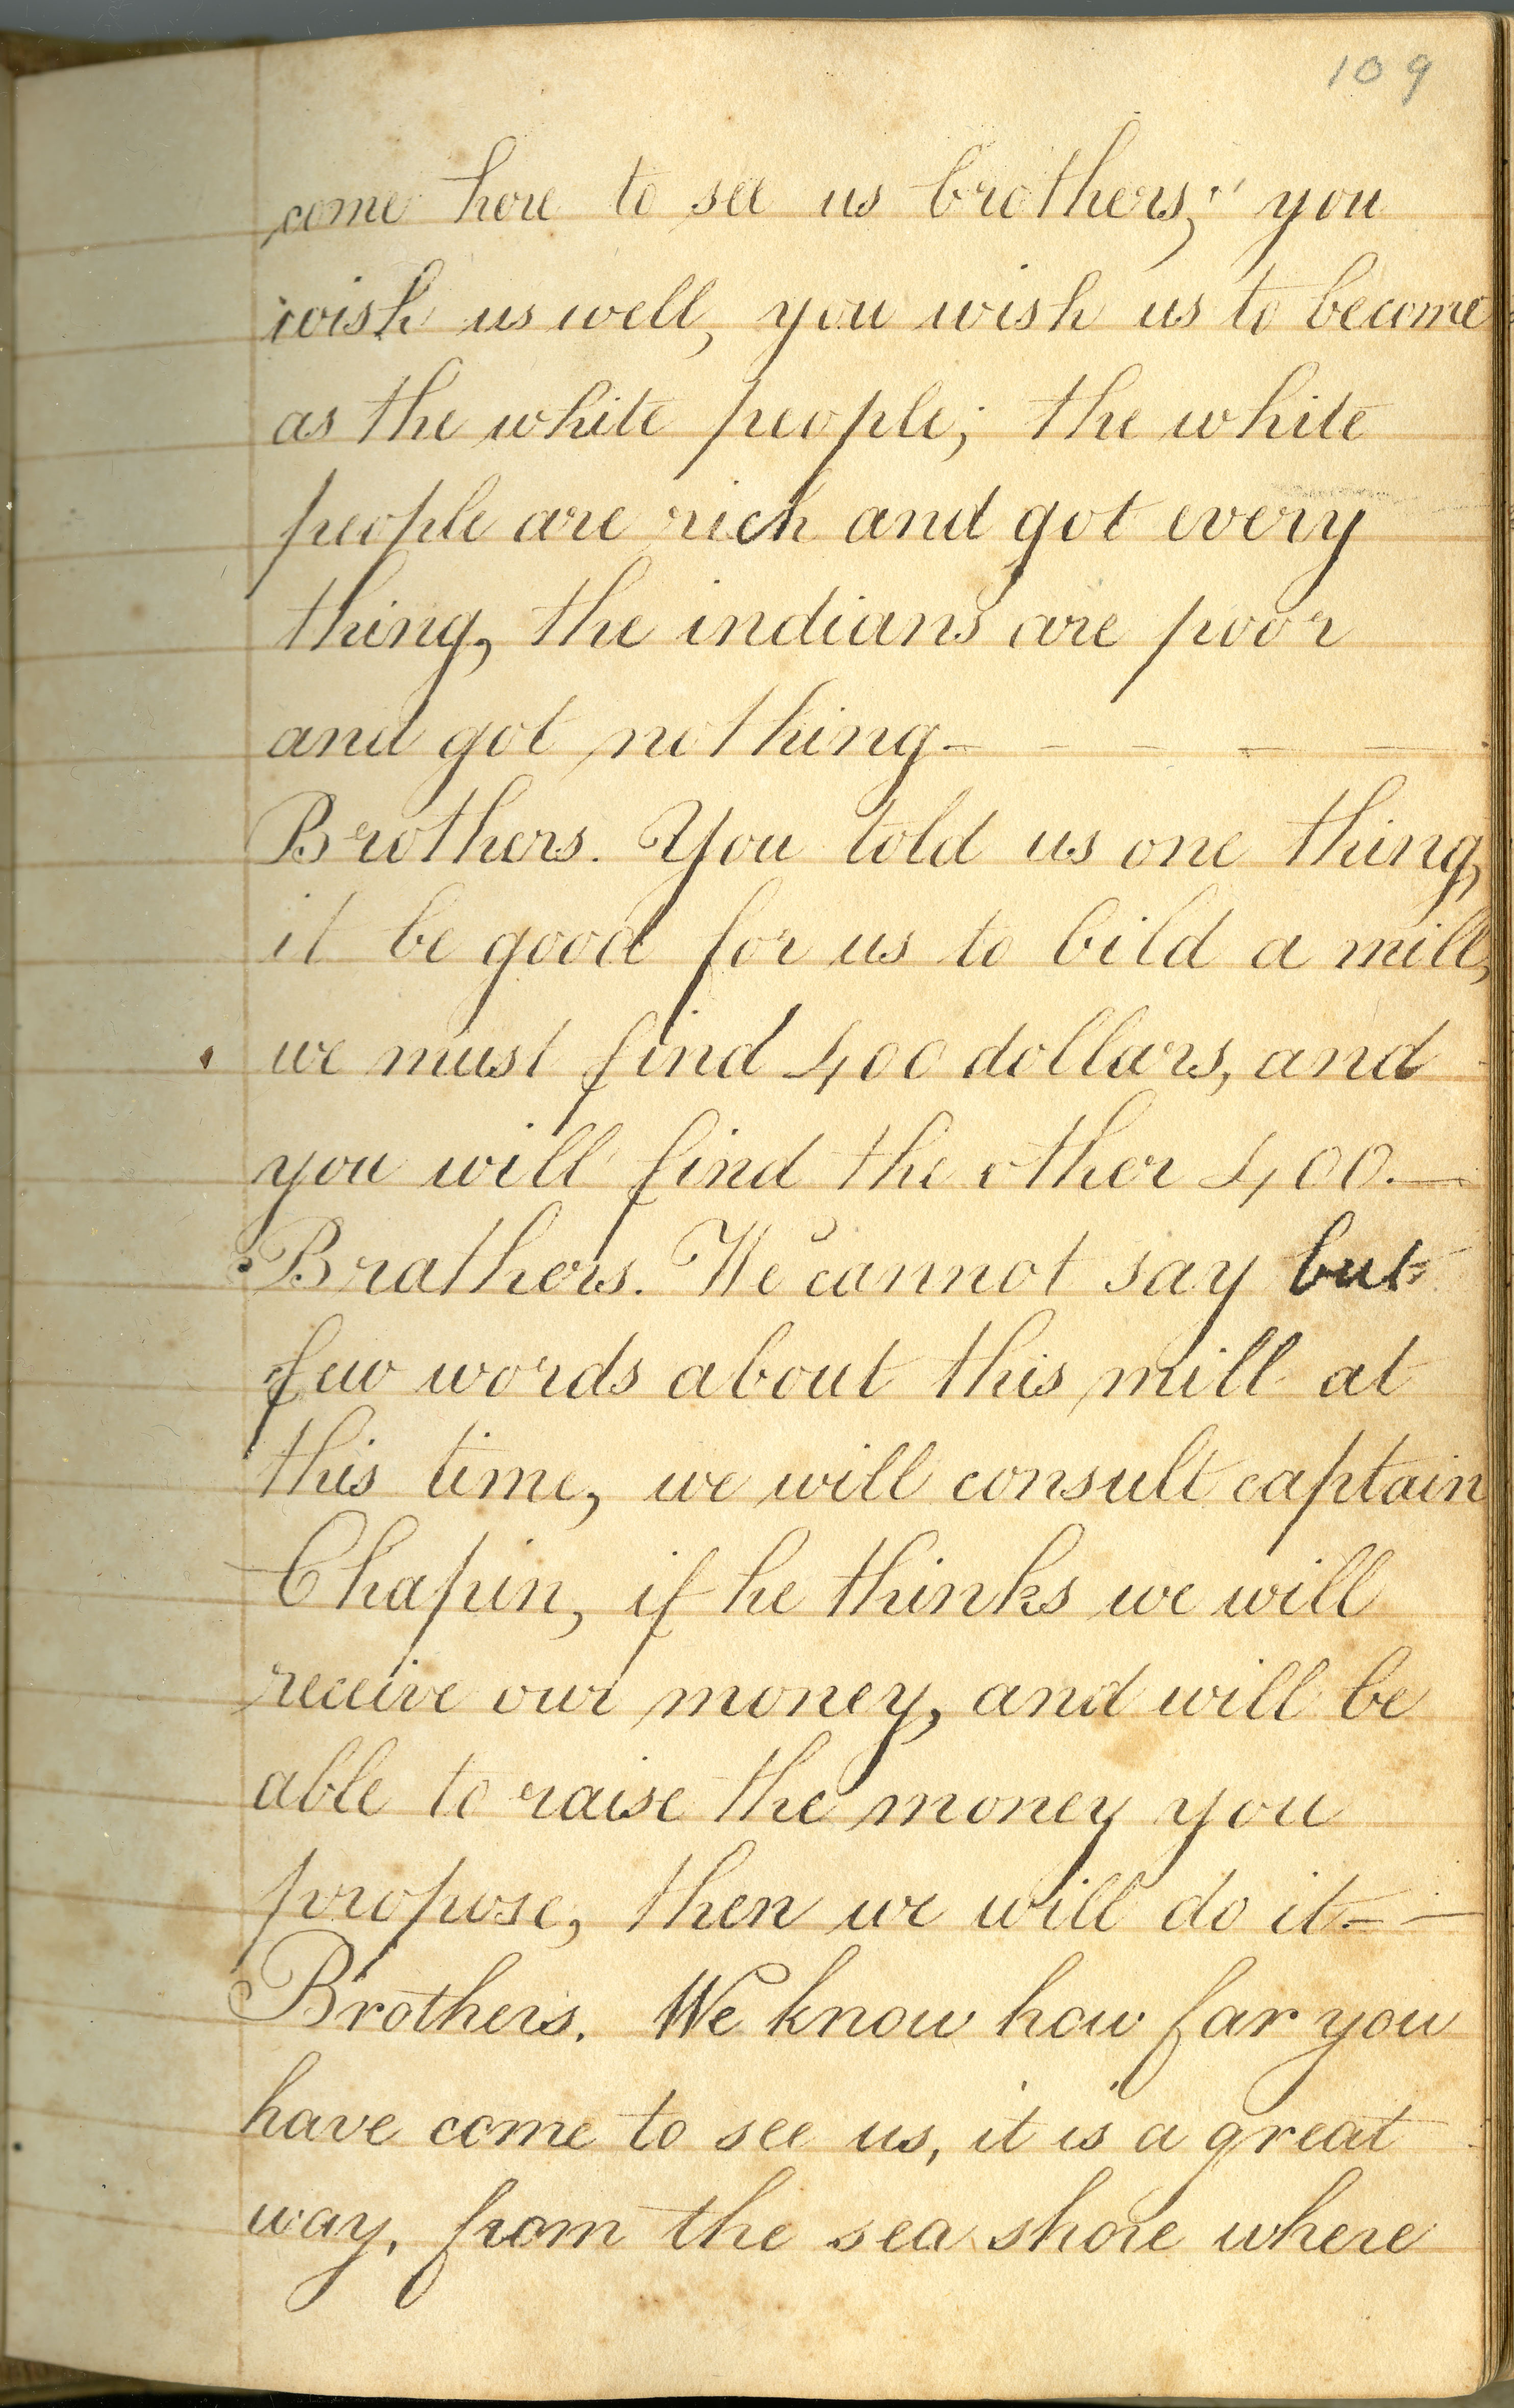 109
come here to see us brothers; you
wish us well, you wish us to become
as the white people; the white
people are rich and got every
thing, the indians are poor
and got nothing- - - - -
Brothers. You told us one thing,
it be good for us to bild a mill,
we must find 400 dollars, and
you will find the other 400.—
Brathers. We cannot say but
few words about this mill at
this time, we will consult captain
Chapin, if he thinks we will
receive our money, and will be
able to raise the money you
propose, then we will do it- -
Brothers. We know how far you
have come to see us, it is a great
way, from the sea shore where